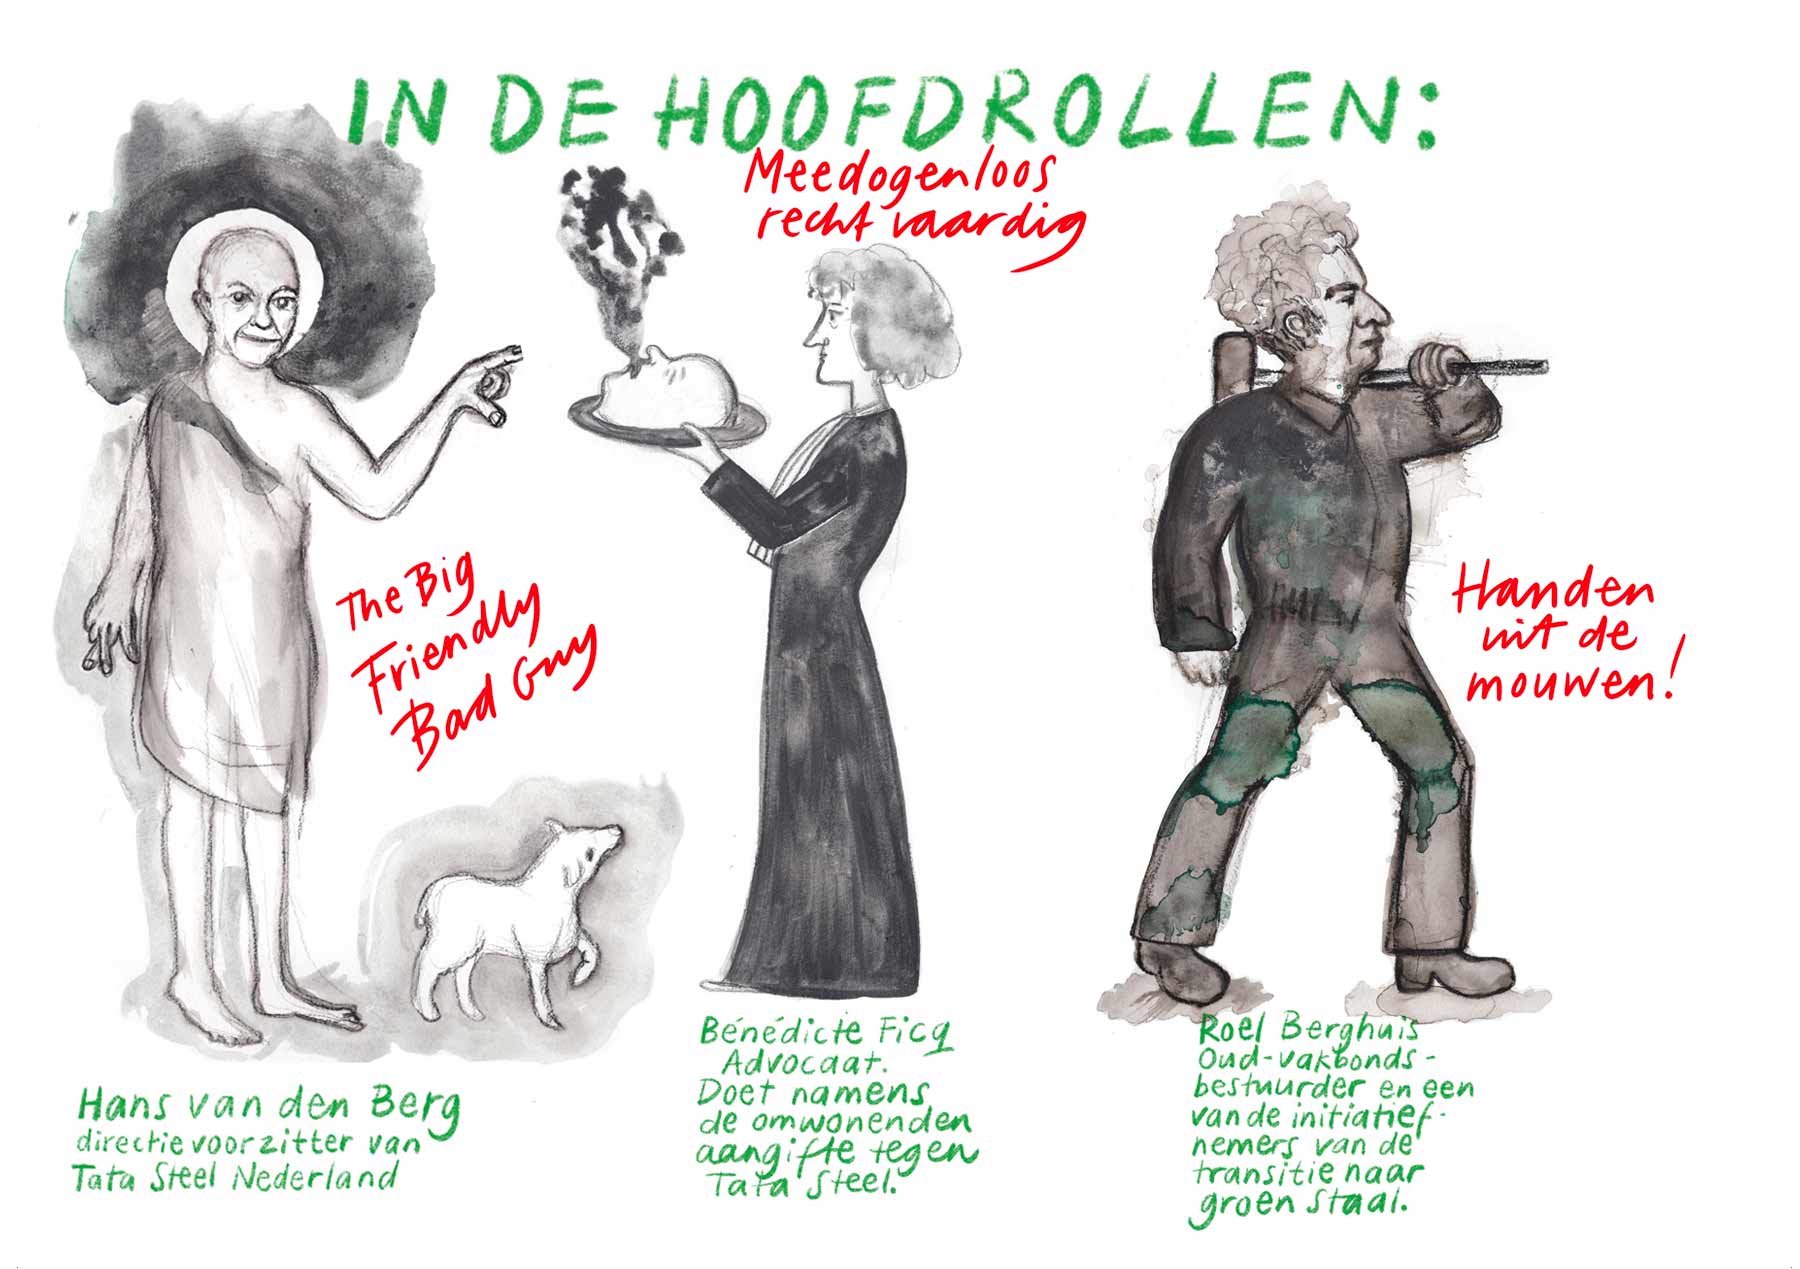 IN DE HOOFDROLLEN:
Meedogenloos
rechtvaardig
The Big
Friendly
Bad Guy
Handen
uit de
mouwen!
Hans van den Berg
directievoorzitter van
Tata Steel Nederland
Bénédicte Ficq
Advocaat.
Doet namens
de omwonenden
aangifte tegen
Tata Steel.
Roel Berghuis
Oud-vakbonds-
bestuurder en een
van de initiatief-
nemers van de
transitie naar
groen staal.